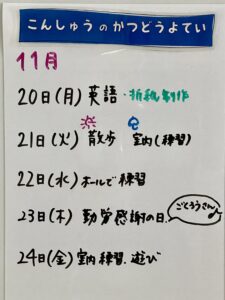 こんしゅうのかつどうよてい
11月
20日(月) 英語・折紙制作
21日(火) 散歩 室内(練習)
22日(水) ホールで練習
23日(木) 勤労感謝の日.
ごとうさん
24日(金) 室内練習.遊び